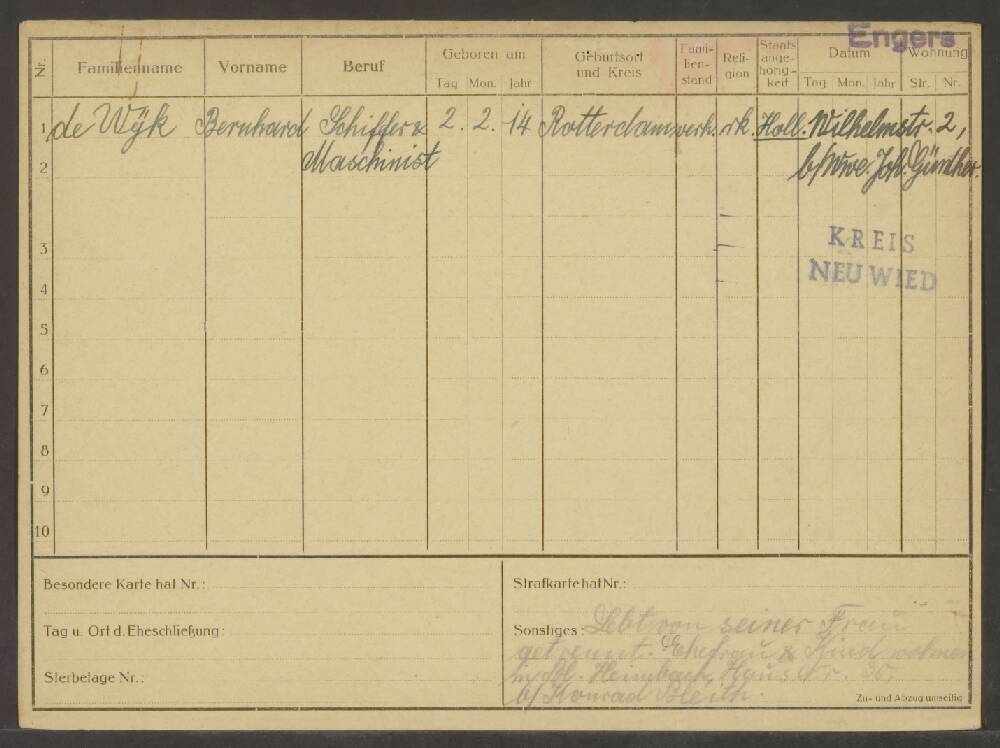 Engers
Nr. Familienname Vorname Beruf Geboren am Geburtsort und Kreis Fami-lien-stand Reli-gion Staats ange-hörig-keit Datum Wohnung
Tag Mon. Jahr Tag Mon. Jahr Str. Nr.
1 de Wÿk Bernhard Schiffer & 2. 2. 14 Rotterdam verh. rk. Holl. Wilhelmstr. 2,
2 Maschinist b/Wwe. Joh. Günther.
KREIS
NEUWIED
3
4
5
6
7
8
9
10
Besondere Karte hat Nr.:
Tag u. Ort d. Eheschließung:
Sterbetage Nr.:
Strafkarte hat Nr.:
Sonstiges: Lebt von seiner Frau
getrennt. Ehefrau & Kind wohnen
Heimbach, Haus Nr.
b/Konrad
Zu- und Abzug umseitig